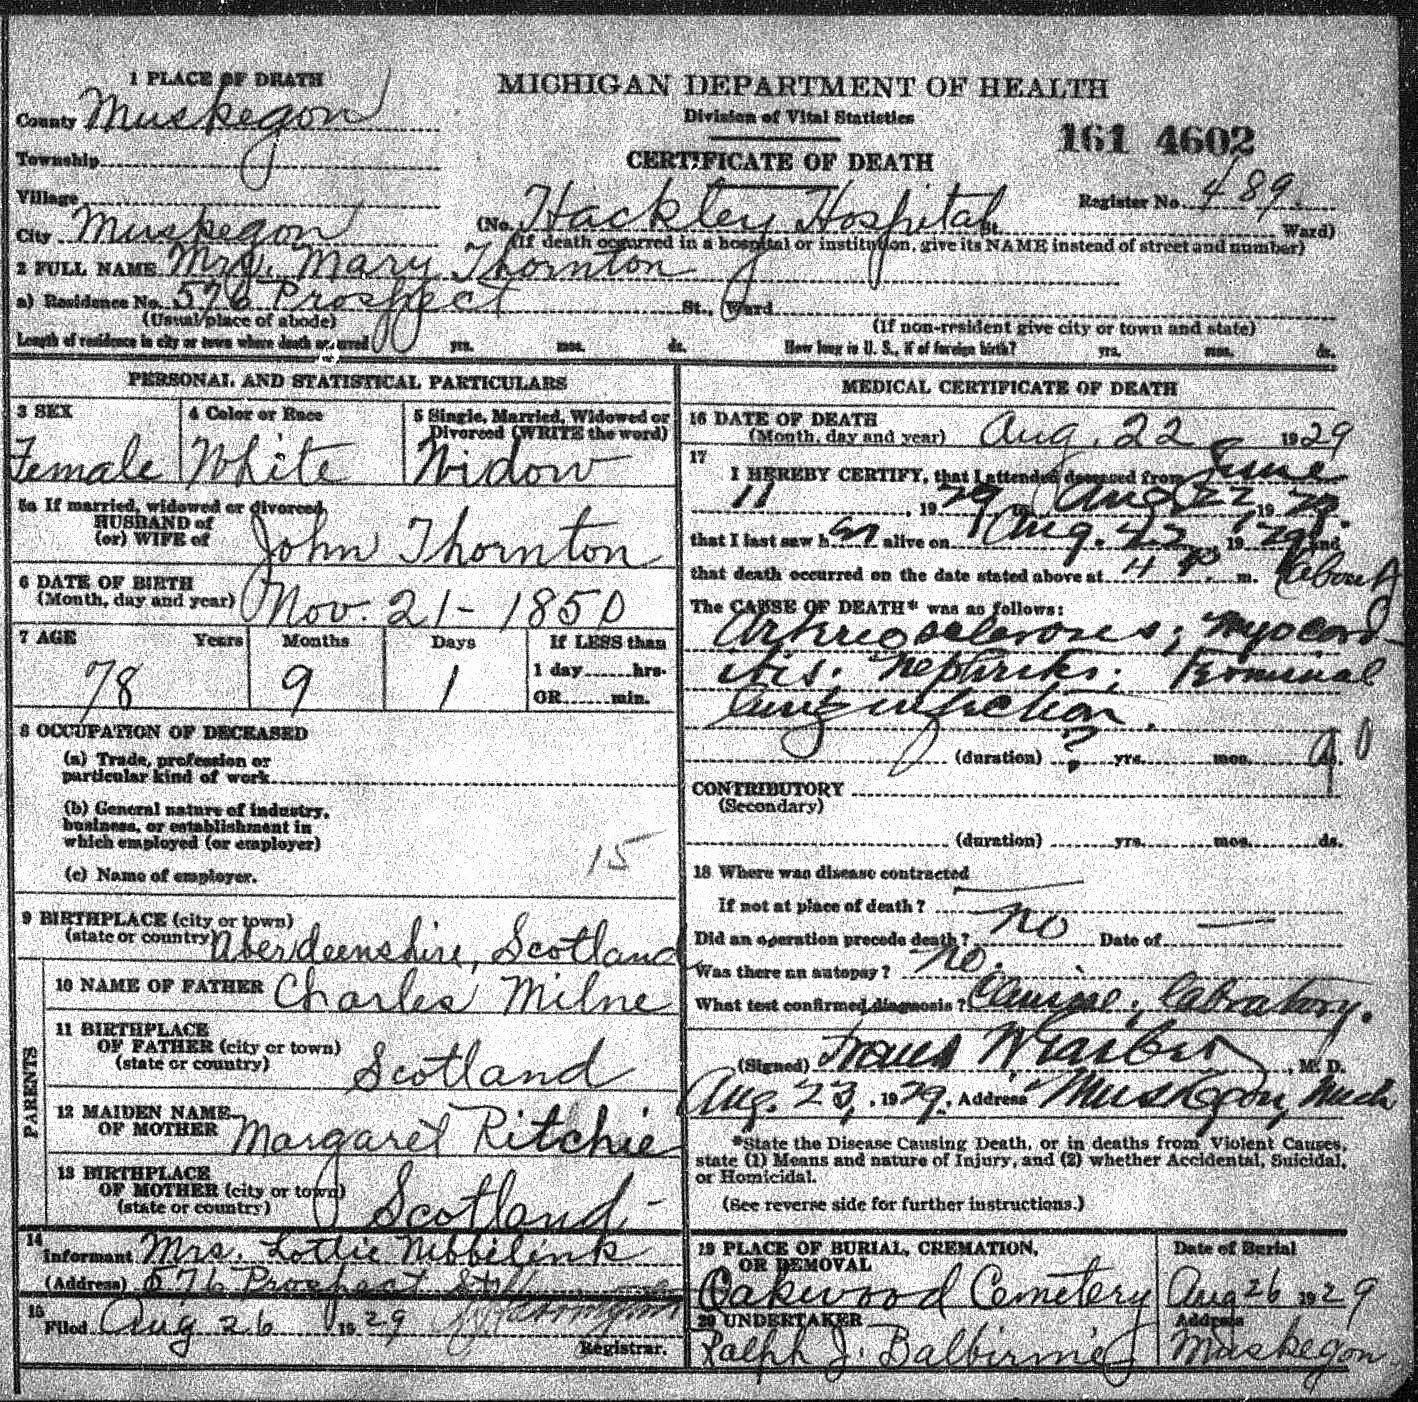 1 PLACE OF DEATH
County Muskegon
Township
Village
City Muskegon
MICHIGAN DEPARTMENT OF HEALTH
Division of Vital Statistics
CERTIFICATE OF DEATH
161 4602
Register No. 489.
(No. Hackley Hospital St. Ward)
(If death occurred in a hospital or institution, give its NAME instead of street and number)
2 FULL NAME Mrs. Mary Thornton
a) Residence No. 576 Prospect St., Ward
(Usual place of abode) (If non-resident give city or town and state)
Length of residence in city or town where death occurred yrs. mos. ds. How long in U. S., if of foreign birth? yrs. mos. ds.
PERSONAL AND STATISTICAL PARTICULARS
3 SEX 4 Color or Race 5 Single, Married, Widowed or
Divorced (WRITE the word)
Female White Widow
5a If married, widowed or divorced
HUSBAND of
(or) WIFE of John Thornton
6 DATE OF BIRTH
(Month, day and year) Nov. 21 - 1850
7 AGE Years Months Days If LESS than
1 day......hrs.
OR......min.
78 9 1
8 OCCUPATION OF DECEASED
(a) Trade, profession or
particular kind of work
(b) General nature of industry,
business, or establishment in
which employed (or employer)
15
(c) Name of employer.
9 BIRTHPLACE (city or town)
(state or country) Aberdeenshire, Scotland
PARENTS
10 NAME OF FATHER Charles Milne
11 BIRTHPLACE
OF FATHER (city or town)
(state or country) Scotland
12 MAIDEN NAME
OF MOTHER Margaret Ritchie
13 BIRTHPLACE
OF MOTHER (city or town)
(state or country) Scotland
14
Informant Mrs. Lottie Nibbelink
(Address) 576 Prospect St
15
Filed Aug 26 1929
Registrar.
MEDICAL CERTIFICATE OF DEATH
16 DATE OF DEATH
(Month, day and year) Aug. 22 1929
17
I HEREBY CERTIFY, that I attended deceased from June
11, 1929, to Aug. 22, 1929.
that I last saw her alive on Aug. 22, 1929 and
that death occurred on the date stated above at 4 P. m. (about)
The CAUSE OF DEATH* was as follows:
Arteriosclerosis; myocard-
itis. Nephritis; Terminal
lung infection.
(duration) ? yrs. mos. ds. 90
CONTRIBUTORY
(Secondary)
(duration) yrs. mos. ds.
18 Where was disease contracted
If not at place of death?
Did an operation precede death? No Date of —
Was there an autopsy? No.
What test confirmed diagnosis? Clinical, laboratory.
(Signed) , M. D.
Aug. 23, 1929. Address Muskegon, Mich
*State the Disease Causing Death, or in deaths from Violent Causes,
state (1) Means and nature of Injury, and (2) whether Accidental, Suicidal,
or Homicidal.
(See reverse side for further instructions.)
19 PLACE OF BURIAL, CREMATION,
OR REMOVAL
Oakwood Cemetery
Date of Burial
Aug 26 1929
20 UNDERTAKER
Ralph J. Balbirnie
Address
Muskegon